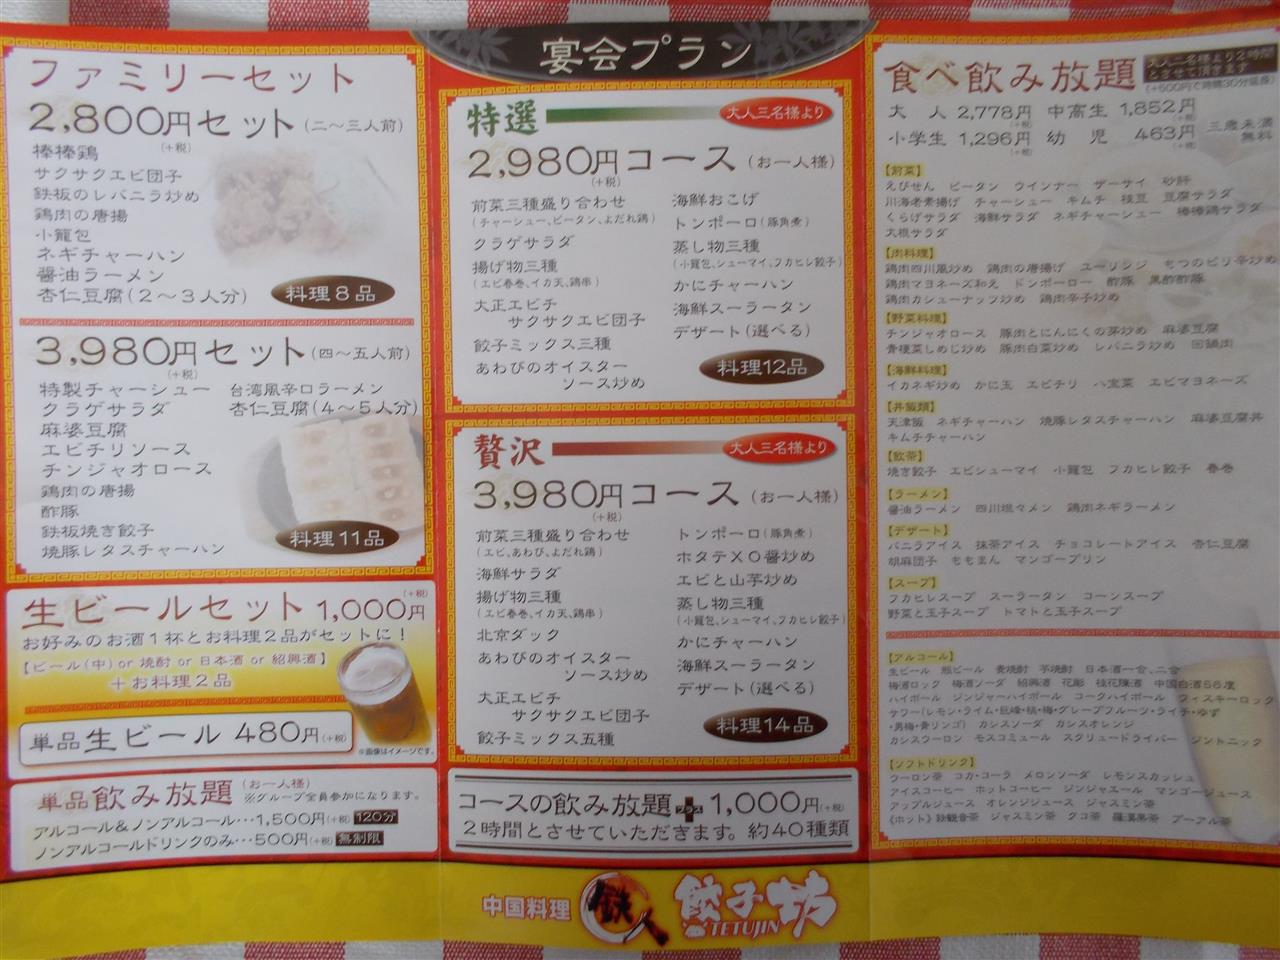 ファミリーセット
2,800円セット(二〜三人前)
(+税)
棒棒鶏
サクサクエビ団子
鉄板のレバニラ炒め
鶏肉の唐揚
小籠包
ネギチャーハン
醤油ラーメン
杏仁豆腐(2〜3人分)
料理8品
3,980円セット(四〜五人前)
(+税)
特製チャーシュー
クラゲサラダ
麻婆豆腐
エビチリソース
チンジャオロース
鶏肉の唐揚
酢豚
鉄板焼き餃子
焼豚レタスチャーハン
台湾風辛口ラーメン
杏仁豆腐(4〜5人分)
料理11品
生ビールセット 1,000円(+税)
お好みのお酒1杯とお料理2品がセットに!
【ビール(中) or 焼酎 or 日本酒 or 紹興酒】
+お料理2品
単品生ビール 480円(+税)
※画像はイメージです。
単品飲み放題(お一人様)
※グループ全員参加になります。
アルコール&ノンアルコール…1,500円(+税) 120分
ノンアルコールドリンクのみ…500円(+税) 無制限
宴会プラン
特選 大人三名様より
2,980円コース(お一人様)
(+税)
前菜三種盛り合わせ
(チャーシュー、ピータン、よだれ鶏)
クラゲサラダ
揚げ物三種
(エビ春巻、イカ天、鶏串)
大正エビチ
サクサクエビ団子
餃子ミックス三種
あわびのオイスター
ソース炒め
海鮮おこげ
トンポーロ(豚角煮)
蒸し物三種
(小籠包、シューマイ、フカヒレ餃子)
かにチャーハン
海鮮スーラータン
デザート(選べる)
料理12品
贅沢 大人三名様より
3,980円コース(お一人様)
(+税)
前菜三種盛り合わせ
(エビ、あわび、よだれ鶏)
海鮮サラダ
揚げ物三種
(エビ春巻、イカ天、鶏串)
北京ダック
あわびのオイスター
ソース炒め
大正エビチ
サクサクエビ団子
餃子ミックス五種
トンポーロ(豚角煮)
ホタテXO醤炒め
エビと山芋炒め
蒸し物三種
(小籠包、シューマイ、フカヒレ餃子)
かにチャーハン
海鮮スーラータン
デザート(選べる)
料理14品
コースの飲み放題プラス1,000円(+税)
2時間とさせていただきます。約40種類
食べ飲み放題
大人二名様より2時間
とさせて頂きます
(+500円で時間30分延長)
大 人 2,778円 中高生 1,852円
(+税) (+税)
小学生 1,296円 幼 児 463円 三歳未満無料
(+税) (+税)
【前菜】
えびせん ピータン ウインナー ザーサイ 砂肝
川海老素揚げ チャーシュー キムチ 枝豆 豆腐サラダ
くらげサラダ 海鮮サラダ ネギチャーシュー 棒棒鶏サラダ
大根サラダ
【肉料理】
鶏肉四川風炒め 鶏肉の唐揚げ ユーリンジ もつのピリ辛炒め
鶏肉マヨネーズ和え ドンポーロー 酢豚 黒酢酢豚
鶏肉カシューナッツ炒め 鶏肉辛子炒め
【野菜料理】
チンジャオロース 豚肉とにんにくの芽炒め 麻婆豆腐
青梗菜しめじ炒め 豚肉白菜炒め レバニラ炒め 回鍋肉
【海鮮料理】
イカネギ炒め かに玉 エビチリ 八宝菜 エビマヨネーズ
【丼飯類】
天津飯 ネギチャーハン 焼豚レタスチャーハン 麻婆豆腐丼
キムチチャーハン
【飲茶】
焼き餃子 エビシューマイ 小籠包 フカヒレ餃子 春巻
【ラーメン】
醤油ラーメン 四川坦々メン 鶏肉ネギラーメン
【デザート】
バニラアイス 抹茶アイス チョコレートアイス 杏仁豆腐
胡麻団子 ももまん マンゴープリン
【スープ】
フカヒレスープ スーラータン コーンスープ
野菜と玉子スープ トマトと玉子スープ
【アルコール】
生ビール 瓶ビール 麦焼酎 芋焼酎 日本酒一合、二合
梅酒ロック 梅酒ソーダ 紹興酒 花彫 桂花陳酒 中国白酒56度
ハイボール ジンジャーハイボール コークハイボール ウィスキーロック
サワー(レモン・ライム・巨峰・桃・梅・グレープフルーツ・ライチ・ゆず
・男梅・青リンゴ) カシスソーダ カシスオレンジ
カシスウーロン モスコミュール スクリュードライバー ジントニック
【ソフトドリンク】
ウーロン茶 コカ・コーラ メロンソーダ レモンスカッシュ
アイスコーヒー ホットコーヒー ジンジャエール マンゴージュース
アップルジュース オレンジジュース ジャスミン茶
《ホット》鉄観音茶 ジャスミン茶 クコ茶 羅漢果茶 プーアル茶
中国料理 鉄人 餃子坊
TETUJIN